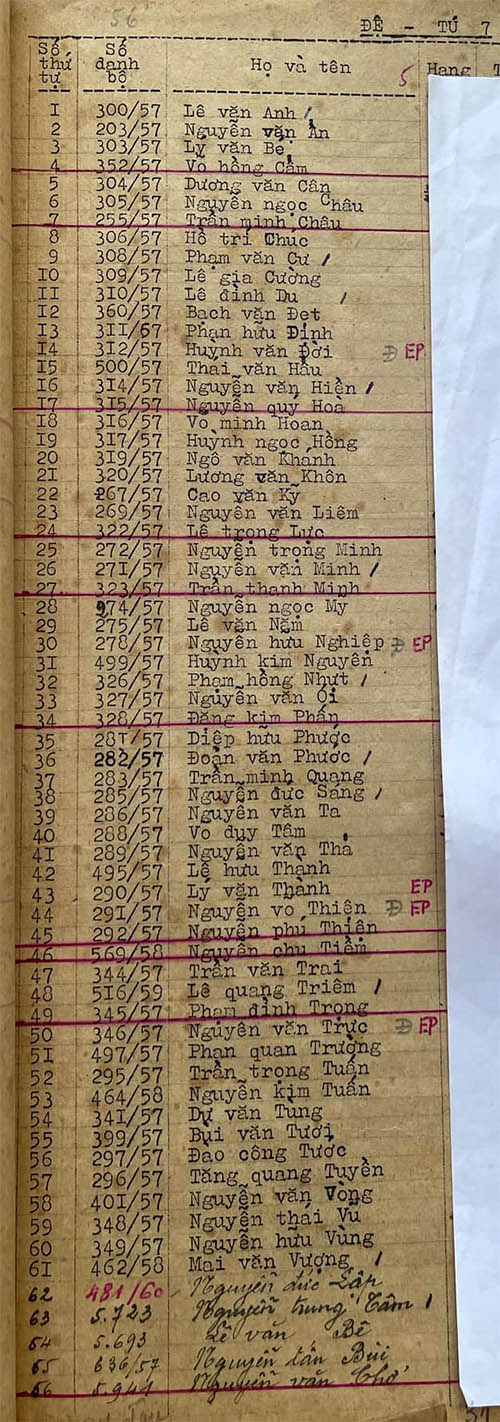 56
ĐỆ - TỨ 7
Số thứ tự Số danh bộ Họ và tên 5 Hạng
1 300/57 Lê văn Anh /
2 203/57 Nguyễn văn Ân
3 303/57 Lý văn Bé
4 352/57 Võ hồng Cẩm
5 304/57 Dương văn Cân
6 305/57 Nguyễn ngọc Châu
7 255/57 Trần minh Châu
8 306/57 Hồ trí Chúc
9 308/57 Phạm văn Cư /
10 309/57 Lê gia Cường
11 310/57 Lê đình Du /
12 360/57 Bạch văn Đẹt
13 311/67 Phan hữu Định
14 312/57 Huỳnh văn Đời Đ EP
15 500/57 Thái văn Hầu
16 314/57 Nguyễn văn Hiền /
17 315/57 Nguyễn quý Hoà
18 316/57 Võ minh Hoàn
19 317/57 Huỳnh ngọc Hồng
20 319/57 Ngô văn Khánh
21 320/57 Lương văn Khôn
22 267/57 Cao văn Kỹ
23 269/57 Nguyễn văn Liêm
24 322/57 Lê trọng Lực
25 272/57 Nguyễn trọng Minh
26 271/57 Nguyễn văn Minh /
27 323/57 Trần thanh Minh
28 974/57 Nguyễn ngọc My
29 275/57 Lê văn Năm
30 278/57 Nguyễn hữu Nghiệp Đ EP
31 499/57 Huỳnh kim Nguyên
32 326/57 Phạm hồng Nhựt /
33 327/57 Nguyễn văn Ơi
34 328/57 Đặng kim Phấn
35 281/57 Diệp hữu Phước
36 282/57 Đoàn văn Phước /
37 283/57 Trần minh Quang
38 285/57 Nguyễn đức Sáng /
39 286/57 Nguyễn văn Ta
40 288/57 Võ duy Tâm
41 289/57 Nguyễn văn Tha
42 495/57 Lê hữu Thành
43 290/57 Lý văn Thành EP
44 291/57 Nguyễn võ Thiện Đ EP
45 292/57 Nguyễn phú Thiện
46 569/58 Nguyễn chu Tiềm
47 344/57 Trần văn Trai
48 516/59 Lê quang Triêm /
49 345/57 Phạm đình Trọng
50 346/57 Nguyễn văn Trực Đ EP
51 497/57 Phan quan Trường
52 295/57 Trần trọng Tuấn
53 464/58 Nguyễn kim Tuấn
54 341/57 Dư văn Tung
55 399/57 Bùi văn Tươi
56 297/57 Đào công Tước
57 296/57 Tăng quang Tuyền
58 401/57 Nguyễn văn Vòng
59 348/57 Nguyễn thái Vũ
60 349/57 Nguyễn hữu Vùng
61 462/58 Mai văn Vượng /
62 481/60 Nguyễn đức Lập
63 5.723 Nguyễn trung Tâm /
64 5.693 Lê văn Bê
65 636/57 Nguyễn tấn Bùi
66 5.941 Nguyễn văn Chơ